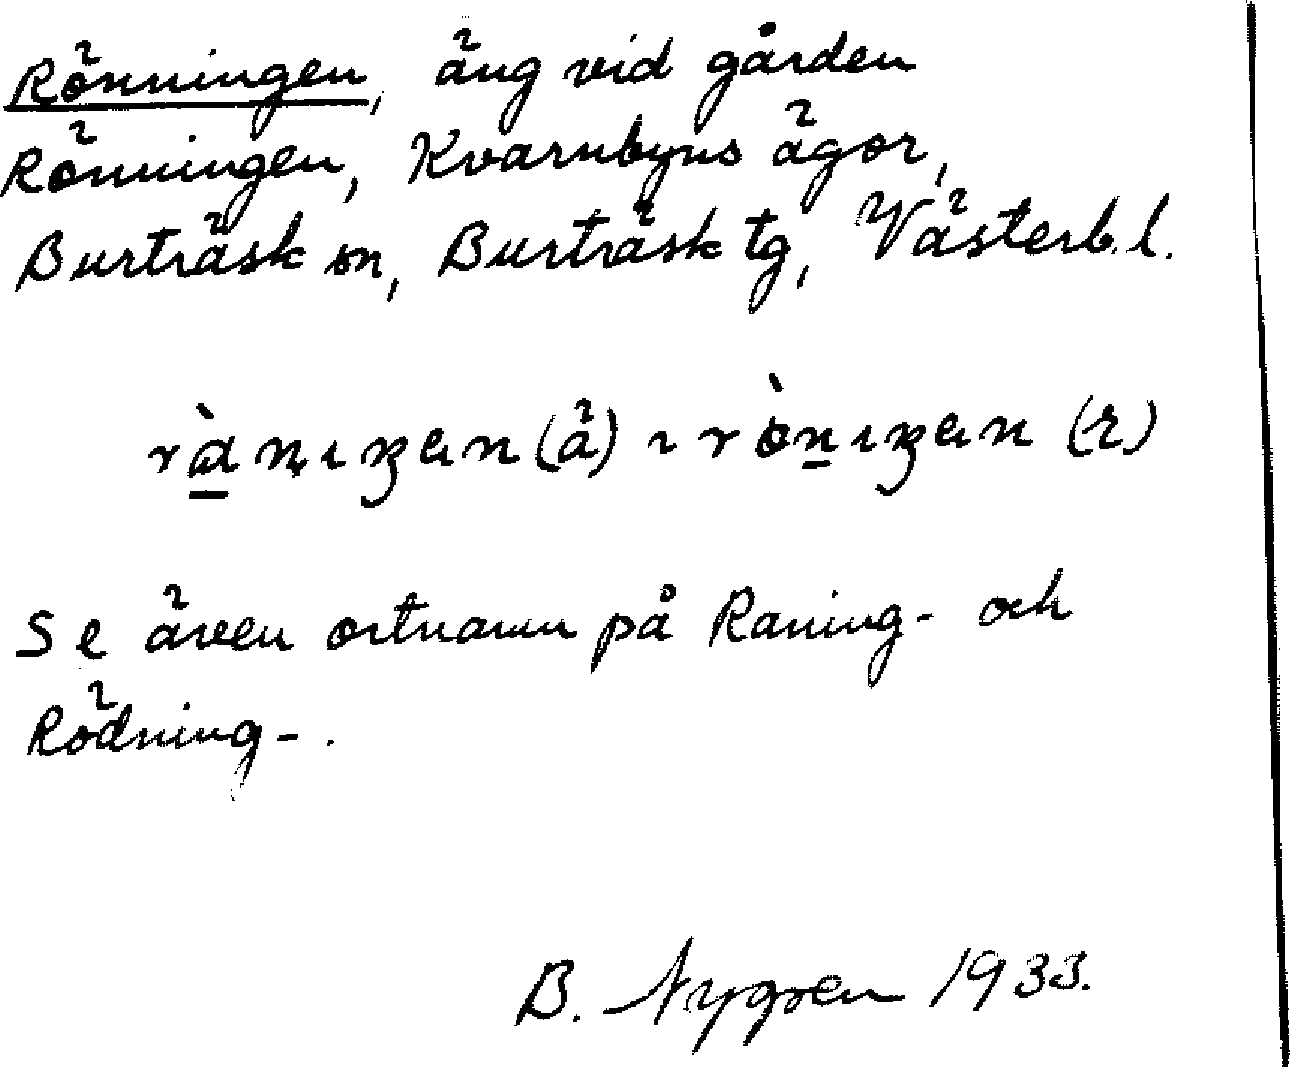 Rönningen, äng vid gården
Rönningen, Kvarnbyns ägor,
Burträsk sn, Burträsk tg, Västerb. l.
Se även ortnamn på Raning- och
Rödning-.
B. Nygren 1933.